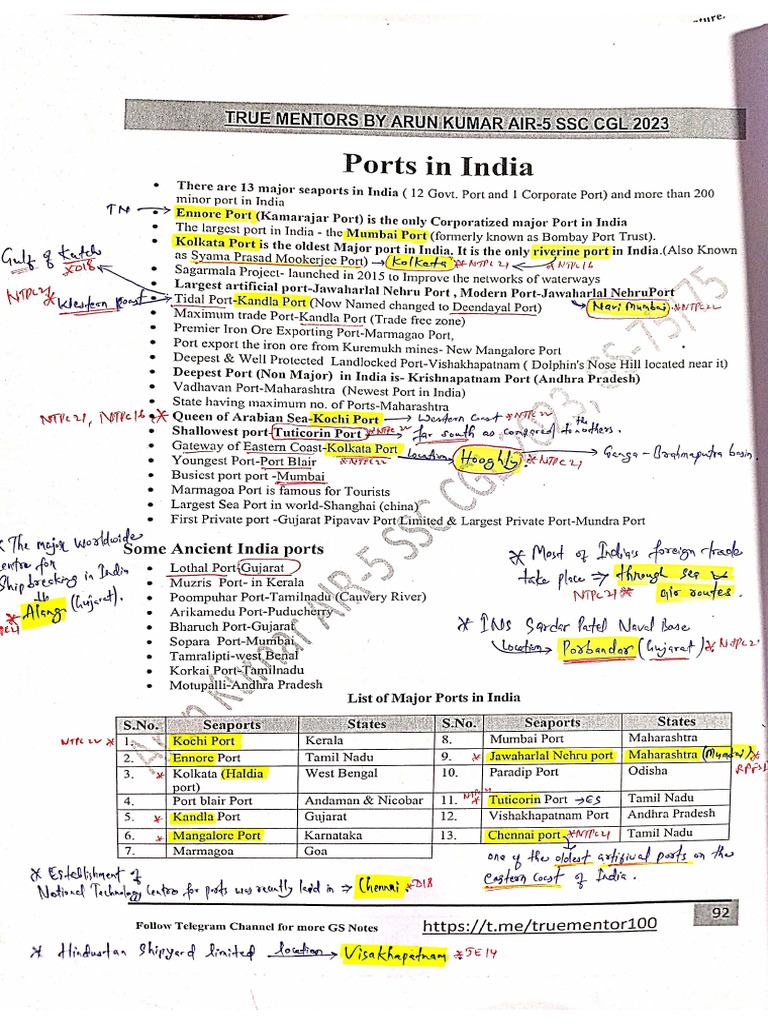 TRUE MENTORS BY ARUN KUMAR AIR-5 SSC CGL 2023
Ports in India
• There are 13 major seaports in India ( 12 Govt. Port and 1 Corporate Port) and more than 200
minor port in India
TN → • Ennore Port (Kamarajar Port) is the only Corporatized major Port in India
• The largest port in India - the Mumbai Port (formerly known as Bombay Port Trust).
• Kolkata Port is the oldest Major port in India. It is the only riverine port in India.(Also Known
as Syama Prasad Mookerjee Port) → Kolkata * NTPC 21 * NTPC 16
Gulf of Kutch
*D18
NTPC 21 * Western coast
• Sagarmala Project- launched in 2015 to Improve the networks of waterways
• Largest artificial port-Jawaharlal Nehru Port , Modern Port-Jawaharlal NehruPort
→ Navi Mumbai * NTPC 22
• Tidal Port-Kandla Port (Now Named changed to Deendayal Port)
• Maximum trade Port-Kandla Port (Trade free zone)
• Premier Iron Ore Exporting Port-Marmagao Port,
• Port export the iron ore from Kuremukh mines- New Mangalore Port
• Deepest & Well Protected Landlocked Port-Vishakhapatnam ( Dolphin's Nose Hill located near it)
• Deepest Port (Non Major) in India is- Krishnapatnam Port (Andhra Pradesh)
• Vadhavan Port-Maharashtra (Newest Port in India)
• State having maximum no. of Ports-Maharashtra
NTPC 21, NTPC 16 * • Queen of Arabian Sea-Kochi Port → Western Coast * NTPC 22
• Shallowest port-Tuticorin Port * NTPC 22 → far south as compared to the others.
• Gateway of Eastern Coast-Kolkata Port location → Hooghly → Ganga - Brahmaputra basin.
* NTPC 22 * NTPC 21
• Youngest Port-Port Blair
• Busiest port port -Mumbai
• Marmagoa Port is famous for Tourists
• Largest Sea Port in world-Shanghai (china)
• First Private port -Gujarat Pipavav Port Limited & Largest Private Port-Mundra Port
* The major worldwide
centre for
Ship breaking in India
Alang (Gujarat).
Some Ancient India ports
• Lothal Port-Gujarat
• Muzris Port- in Kerala
• Poompuhar Port-Tamilnadu (Cauvery River)
• Arikamedu Port-Puducherry
• Bharuch Port-Gujarat
• Sopara Port-Mumbai
• Tamralipti-west Benal
• Korkai Port-Tamilnadu
• Motupalli-Andhra Pradesh
* Most of India's foreign trade
take place → through sea
NTPC 21 * air routes.
* INS Sardar Patel Naval Base
Location → Porbandar (Gujarat) * NTPC 2
List of Major Ports in India
S.No. Seaports States S.No. Seaports States
NTPC 22 * 1. Kochi Port Kerala 8. Mumbai Port Maharashtra
2. Ennore Port Tamil Nadu 9. * Jawaharlal Nehru port Maharashtra (Mumbai) *
3. * Kolkata (Haldia port) West Bengal 10. Paradip Port Odisha
4. Port blair Port Andaman & Nicobar 11. * Tuticorin Port → ES Tamil Nadu
5. * Kandla Port Gujarat 12. Vishakhapatnam Port Andhra Pradesh
6. * Mangalore Port Karnataka 13. Chennai port * NTPC 21 Tamil Nadu
7. Marmagoa Goa
one of the oldest artifival ports on the
eastern coast of India.
* Establishment of
National Technology Centre for ports was recently laid in ⇒ Chennai * D18
92
Follow Telegram Channel for more GS Notes https://t.me/truementor100
* Hindustan Shipyard limited location → Visakhapatnam * JE14
Arun Kumar AIR-5 SSC CGL 2023, GS-75/75